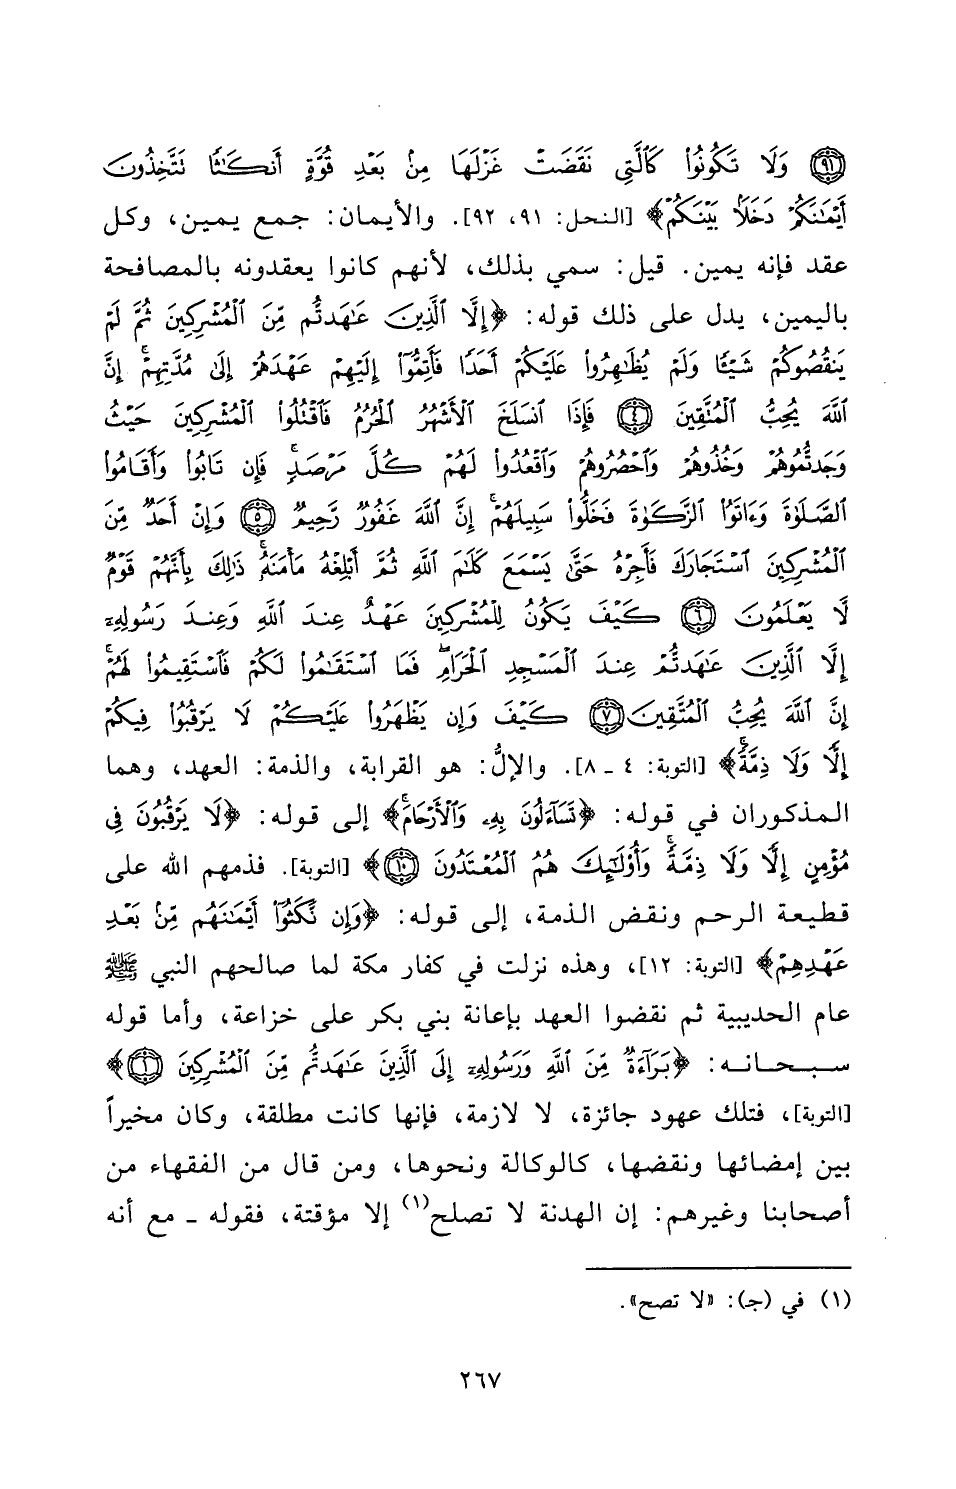 ﴿٩١﴾ وَلَا تَكُونُوا۟ كَٱلَّتِى نَقَضَتْ غَزْلَهَا مِنۢ بَعْدِ قُوَّةٍ أَنكَـٰثًا نَتَّخِذُونَ
أَيْمَـٰنَكُمْ دَخَلًۢا بَيْنَكُمْ﴾ [النحل: ٩١، ٩٢]. والأيمان: جمع يمين، وكل
عقد فإنه يمين. قيل: سمي بذلك، لأنهم كانوا يعقدونه بالمصافحة
باليمين، يدل على ذلك قوله: ﴿إِلَّا ٱلَّذِينَ عَـٰهَدتُّم مِّنَ ٱلْمُشْرِكِينَ ثُمَّ لَمْ
يَنقُصُوكُمْ شَيْـًٔا وَلَمْ يُظَـٰهِرُوا۟ عَلَيْكُمْ أَحَدًا فَأَتِمُّوٓا۟ إِلَيْهِمْ عَهْدَهُمْ إِلَىٰ مُدَّتِهِمْ ۚ إِنَّ
ٱللَّهَ يُحِبُّ ٱلْمُتَّقِينَ ﴿٤﴾ فَإِذَا ٱنسَلَخَ ٱلْأَشْهُرُ ٱلْحُرُمُ فَٱقْتُلُوا۟ ٱلْمُشْرِكِينَ حَيْثُ
وَجَدتُّمُوهُمْ وَخُذُوهُمْ وَٱحْصُرُوهُمْ وَٱقْعُدُوا۟ لَهُمْ كُلَّ مَرْصَدٍ ۚ فَإِن تَابُوا۟ وَأَقَامُوا۟
ٱلصَّلَوٰةَ وَءَاتَوُا۟ ٱلزَّكَوٰةَ فَخَلُّوا۟ سَبِيلَهُمْ ۚ إِنَّ ٱللَّهَ غَفُورٌ رَّحِيمٌ ﴿٥﴾ وَإِنْ أَحَدٌ مِّنَ
ٱلْمُشْرِكِينَ ٱسْتَجَارَكَ فَأَجِرْهُ حَتَّىٰ يَسْمَعَ كَلَـٰمَ ٱللَّهِ ثُمَّ أَبْلِغْهُ مَأْمَنَهُۥ ۚ ذَٰلِكَ بِأَنَّهُمْ قَوْمٌ
لَّا يَعْلَمُونَ ﴿٦﴾ كَيْفَ يَكُونُ لِلْمُشْرِكِينَ عَهْدٌ عِندَ ٱللَّهِ وَعِندَ رَسُولِهِۦٓ
إِلَّا ٱلَّذِينَ عَـٰهَدتُّمْ عِندَ ٱلْمَسْجِدِ ٱلْحَرَامِ ۖ فَمَا ٱسْتَقَـٰمُوا۟ لَكُمْ فَٱسْتَقِيمُوا۟ لَهُمْ ۚ
إِنَّ ٱللَّهَ يُحِبُّ ٱلْمُتَّقِينَ ﴿٧﴾ كَيْفَ وَإِن يَظْهَرُوا۟ عَلَيْكُمْ لَا يَرْقُبُوا۟ فِيكُمْ
إِلًّا وَلَا ذِمَّةً ۚ﴾ [التوبة: ٤ ـ ٨]. والإلُّ: هو القرابة، والذمة: العهد، وهما
المذكوران في قوله: ﴿تَسَآءَلُونَ بِهِۦ وَٱلْأَرْحَامَ ۚ﴾ إلى قوله: ﴿لَا يَرْقُبُونَ فِى
مُؤْمِنٍ إِلًّا وَلَا ذِمَّةً ۚ وَأُو۟لَـٰٓئِكَ هُمُ ٱلْمُعْتَدُونَ ﴿١٠﴾﴾ [التوبة]. فذمهم الله على
قطيعة الرحم ونقض الذمة، إلى قوله: ﴿وَإِن نَّكَثُوٓا۟ أَيْمَـٰنَهُم مِّنۢ بَعْدِ
عَهْدِهِمْ﴾ [التوبة: ١٢]، وهذه نزلت في كفار مكة لما صالحهم النبي ﷺ
عام الحديبية ثم نقضوا العهد بإعانة بني بكر على خزاعة، وأما قوله
سبحانه: ﴿بَرَآءَةٌ مِّنَ ٱللَّهِ وَرَسُولِهِۦٓ إِلَى ٱلَّذِينَ عَـٰهَدتُّم مِّنَ ٱلْمُشْرِكِينَ ﴿١﴾﴾
[التوبة]، فتلك عهود جائزة، لا لازمة، فإنها كانت مطلقة، وكان مخيراً
بين إمضائها ونقضها، كالوكالة ونحوها، ومن قال من الفقهاء من
أصحابنا وغيرهم: إن الهدنة لا تصلح(١) إلا مؤقتة، فقوله ـ مع أنه
(١) في (جـ): «لا تصح».
٢٦٧